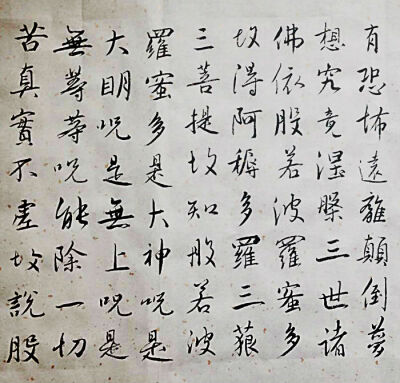 有恐怖遠離顛倒夢
想究竟涅槃三世諸
佛依般若波羅蜜多
故得阿耨多羅三藐
三菩提故知般若波
羅蜜多是大神呪是
大明呪是無上呪是
無等等呪能除一切
苦真實不虛故說般